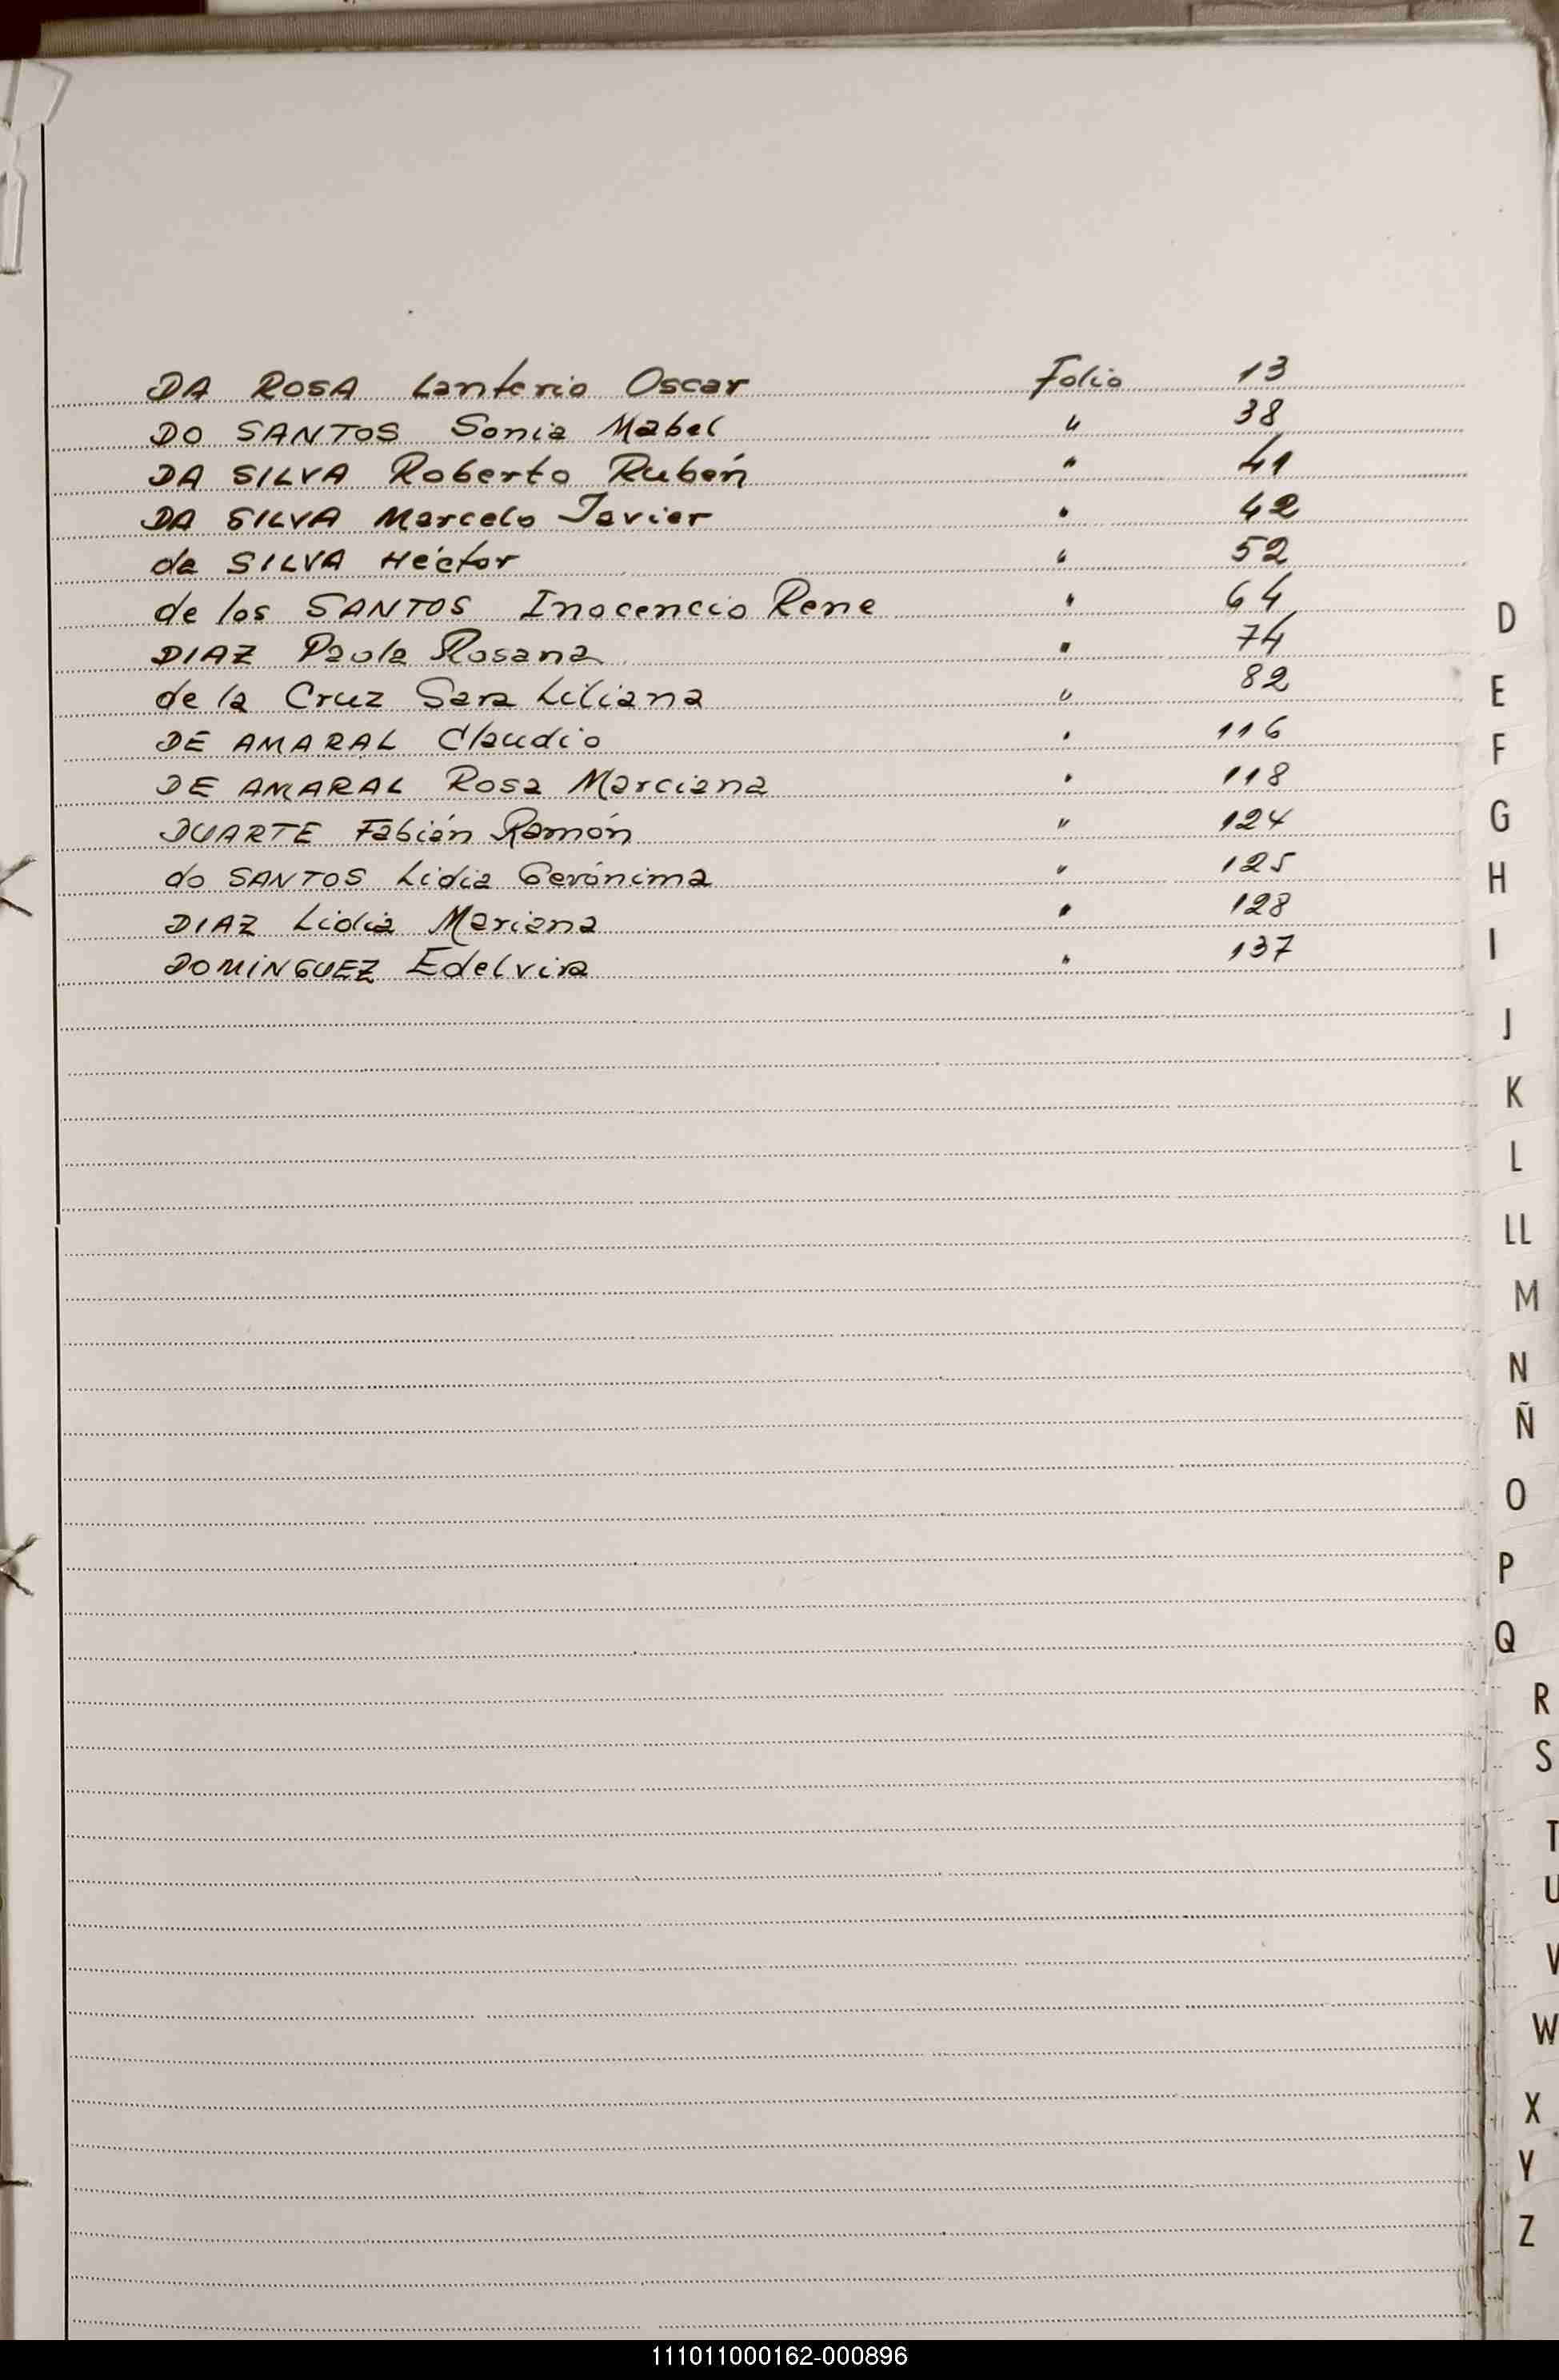 DA ROSA Lanterio Oscar Folio 13
DO SANTOS Sonia Mabel " 38
DA SILVA Roberto Rubén " 41
DA SILVA Marcelo Javier " 42
da SILVA Héctor " 52
de los SANTOS Inocencio Rene " 64
DIAZ Paola Rosana " 74
de la Cruz Sara Liliana " 82
DE AMARAL Claudio " 116
DE AMARAL Rosa Marciana " 118
DUARTE Fabián Ramón " 124
do SANTOS Lidia Gerónima " 125
DIAZ Lidia Mariana " 128
DOMINGUEZ Edelvira " 137
D
E
F
G
H
I
J
K
L
LL
M
N
Ñ
O
P
Q
R
S
T
U
V
W
X
Y
Z
111011000162-000896